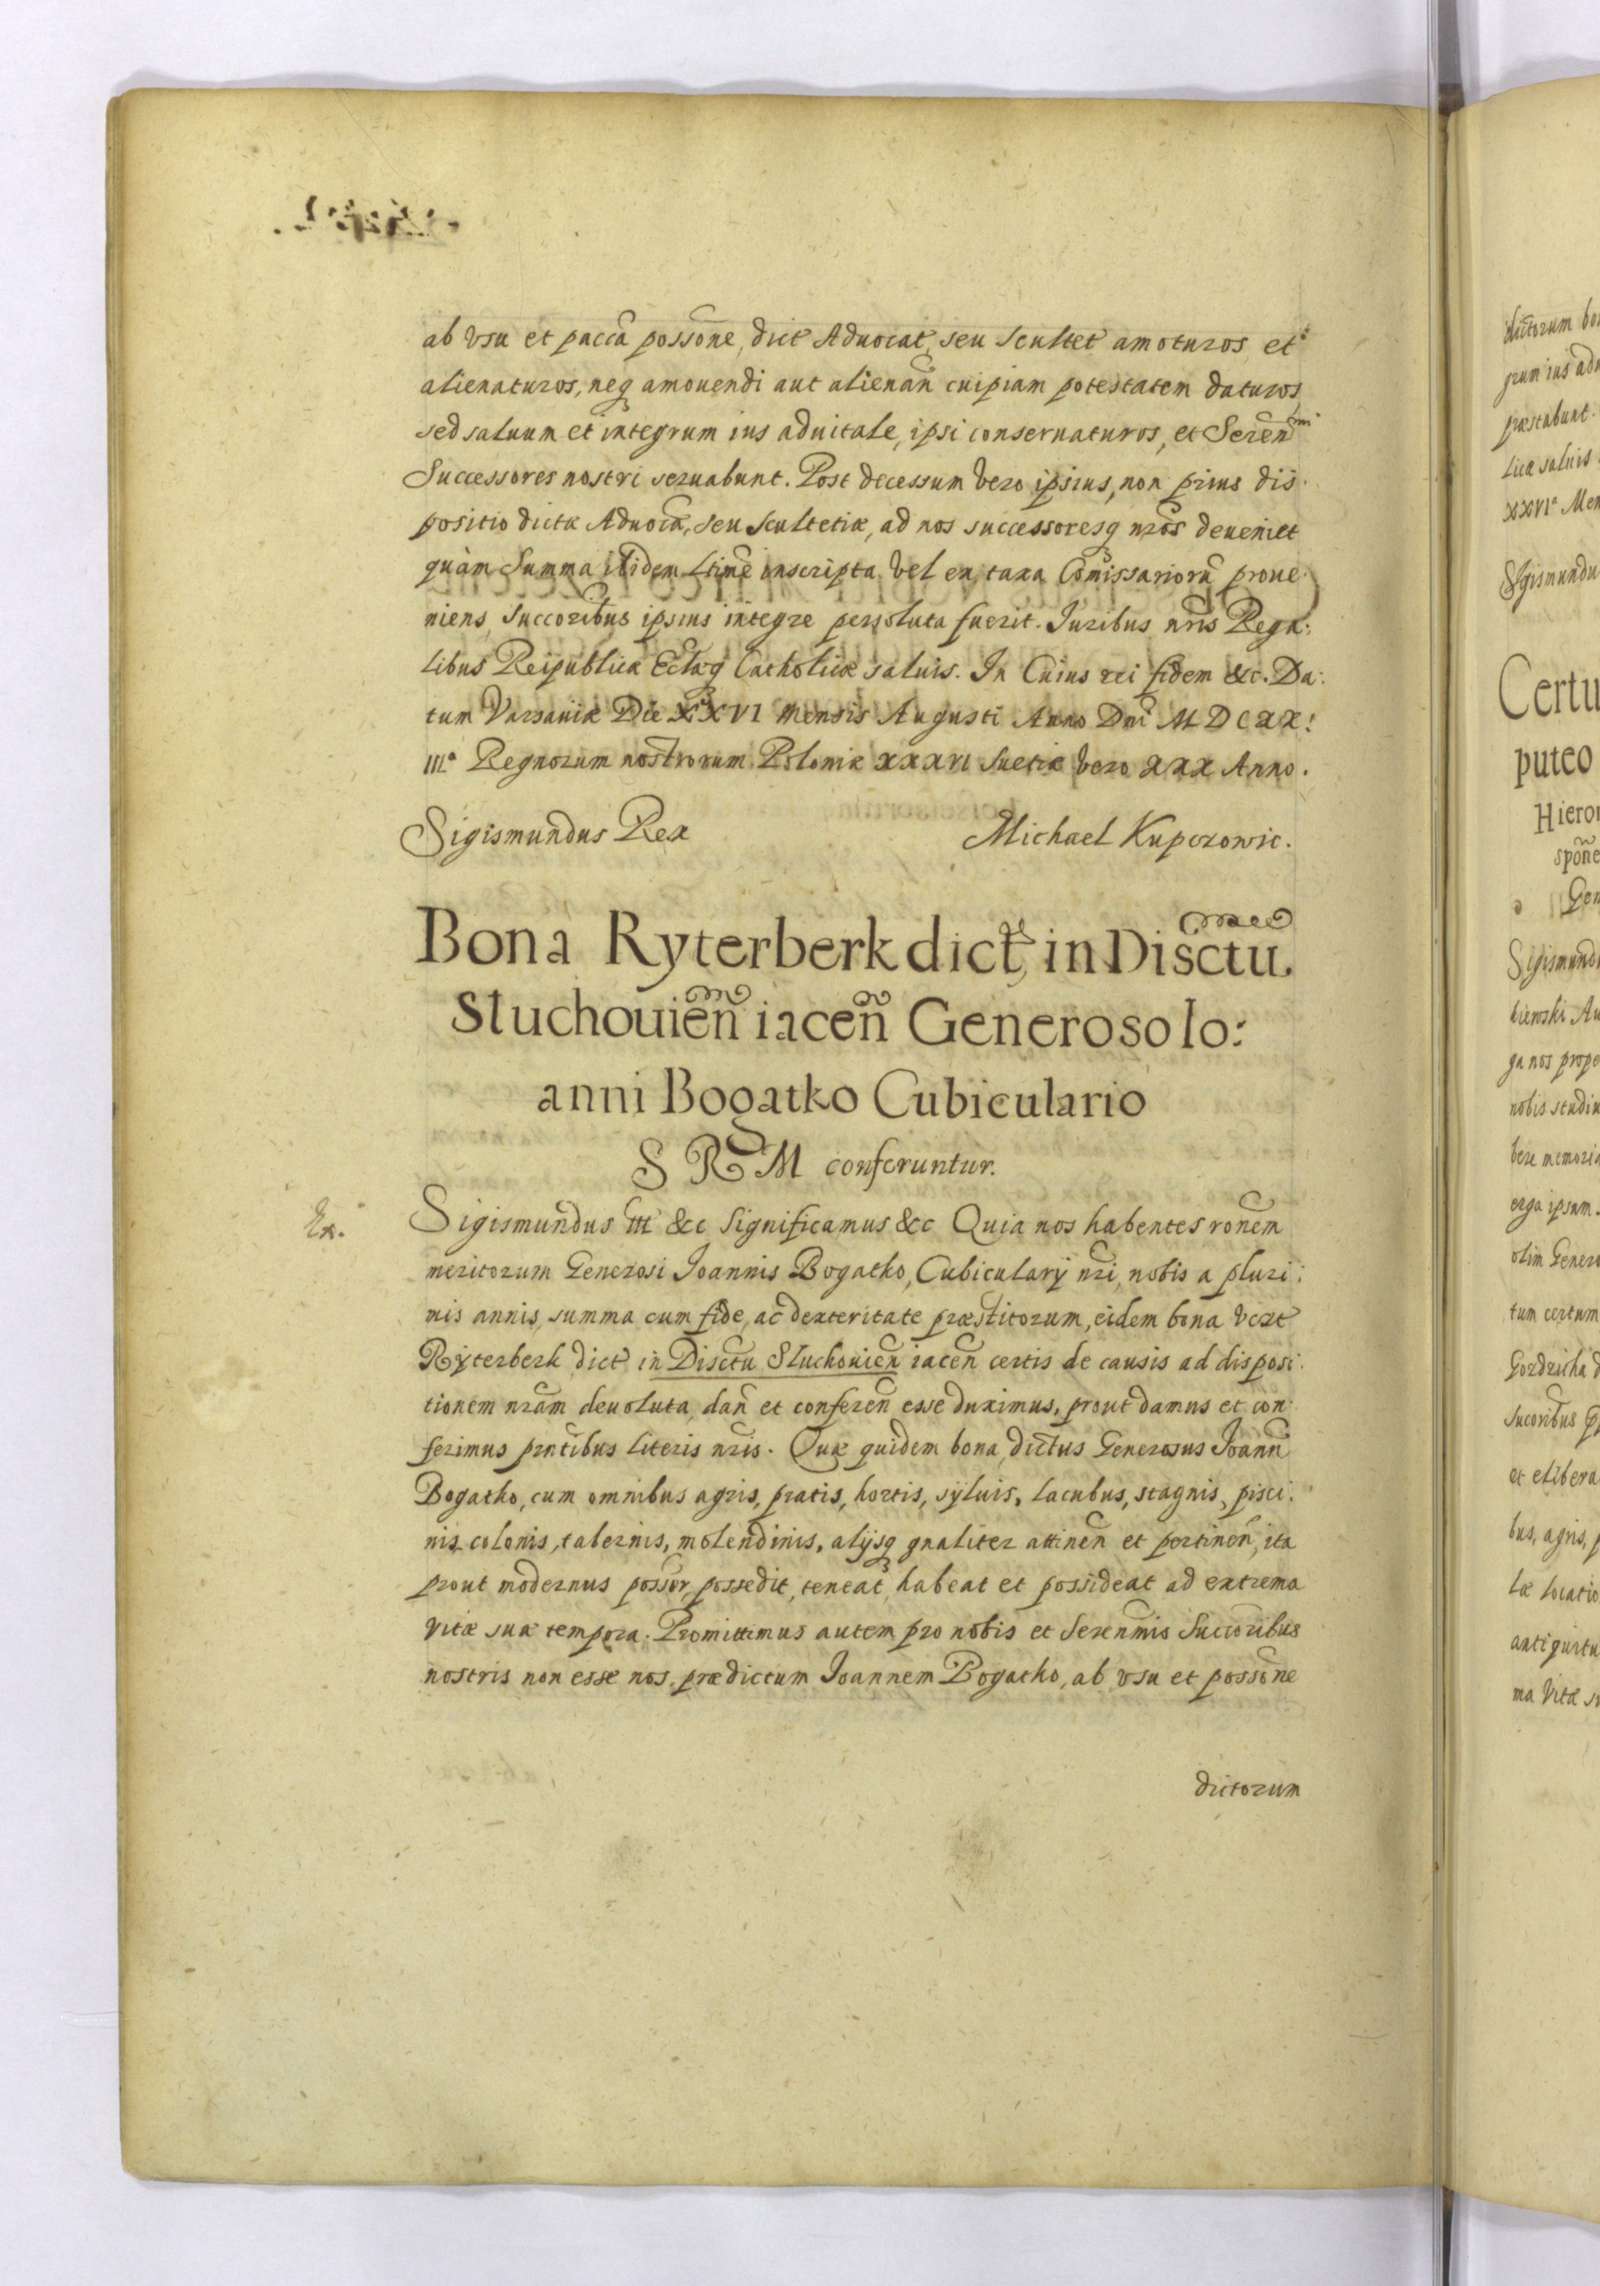 ab vsu et paccã possone, dict Aduocat, seu scultet amoturos et
alienaturos, neq amouendi aut alienan cuipiam potestatem daturos,
sed saluum et integrum ius aduitale, ipsi conseruaturos, et Seren mi
Successores nostri seruabunt. Post decessum vero ipsius, non prius dis
positio dictæ Aduocã, seu scultetiæ, ad nos successoresq nros deueniet
quàm summa ibidem ltime inscripta vel ex taxa Comissariorũ proue:
niens, succoribus ipsius integre persoluta fuerit. Iuribus nris Rega:
libus Reipublicæ Eclæq Catholicæ saluis. In Cuius rei fidem &c. Da:
tum Varsauiæ Die XXVI mensis Augusti Anno Dni MDCXX:
III° Regnorum nostrorum Poloniæ XXXVI Suetiæ vero XXX Anno.
Sigismundus Rex Michael Kupczowic.
Bona Ryterberk dict, in Disctu
Sluchouien iacen Generoso Io:
anni Bogatko Cubiculario
S R M conferuntur.
Sigismundus III &c Significamus &c Quia nos habentes ronem
meritorum Generosi Joannis Bogatko, Cubiculary nri, nobis a pluri:
mis annis, summa cum fide, ac dexteritate præstitorum, eidem bona
Ryterberk dict in Disctu Sluchouien iacen certis de causis ad disposi:
tionem nram deuoluta, dan et conferen esse duximus, prout damus et con:
ferimus pntibus literis nris. Quæ quidem bona, dictus Generosus Joann
Bogatko, cum omnibus agris, pratis, hortis, syluis, lacubus, stagnis, pisci:
nis, colonis, tabernis, molendinis, alijsq gnaliter attinen et pertinen, ita
prout modernus possor, possedit, teneat, habeat et possideat ad extrema
vitæ suæ tempora. Promittimus autem pro nobis et Serenmis Succoribus
nostris non esse nos, prædictum Joannem Bogatko, ab vsu et possone
dictorum
dictorum
præstabunt.
licæ saluis
XXVI° Men
Certu
puteo
spone
Sigismund
ga nos prope
nobis studiu
bere memoria
erga ipsum.
olim Genero
tum certum
et elibera
bus, agris,
antiquitu
ma Vitæ su